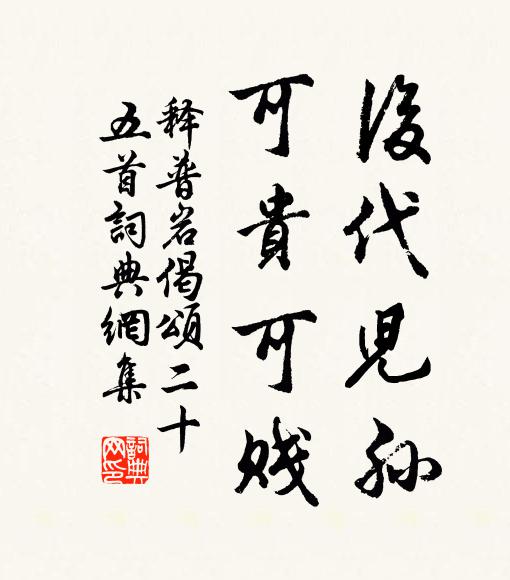 後代児孫
可貴可賤
释普岩偈頌二十
五首詞典網集
詞典
网印